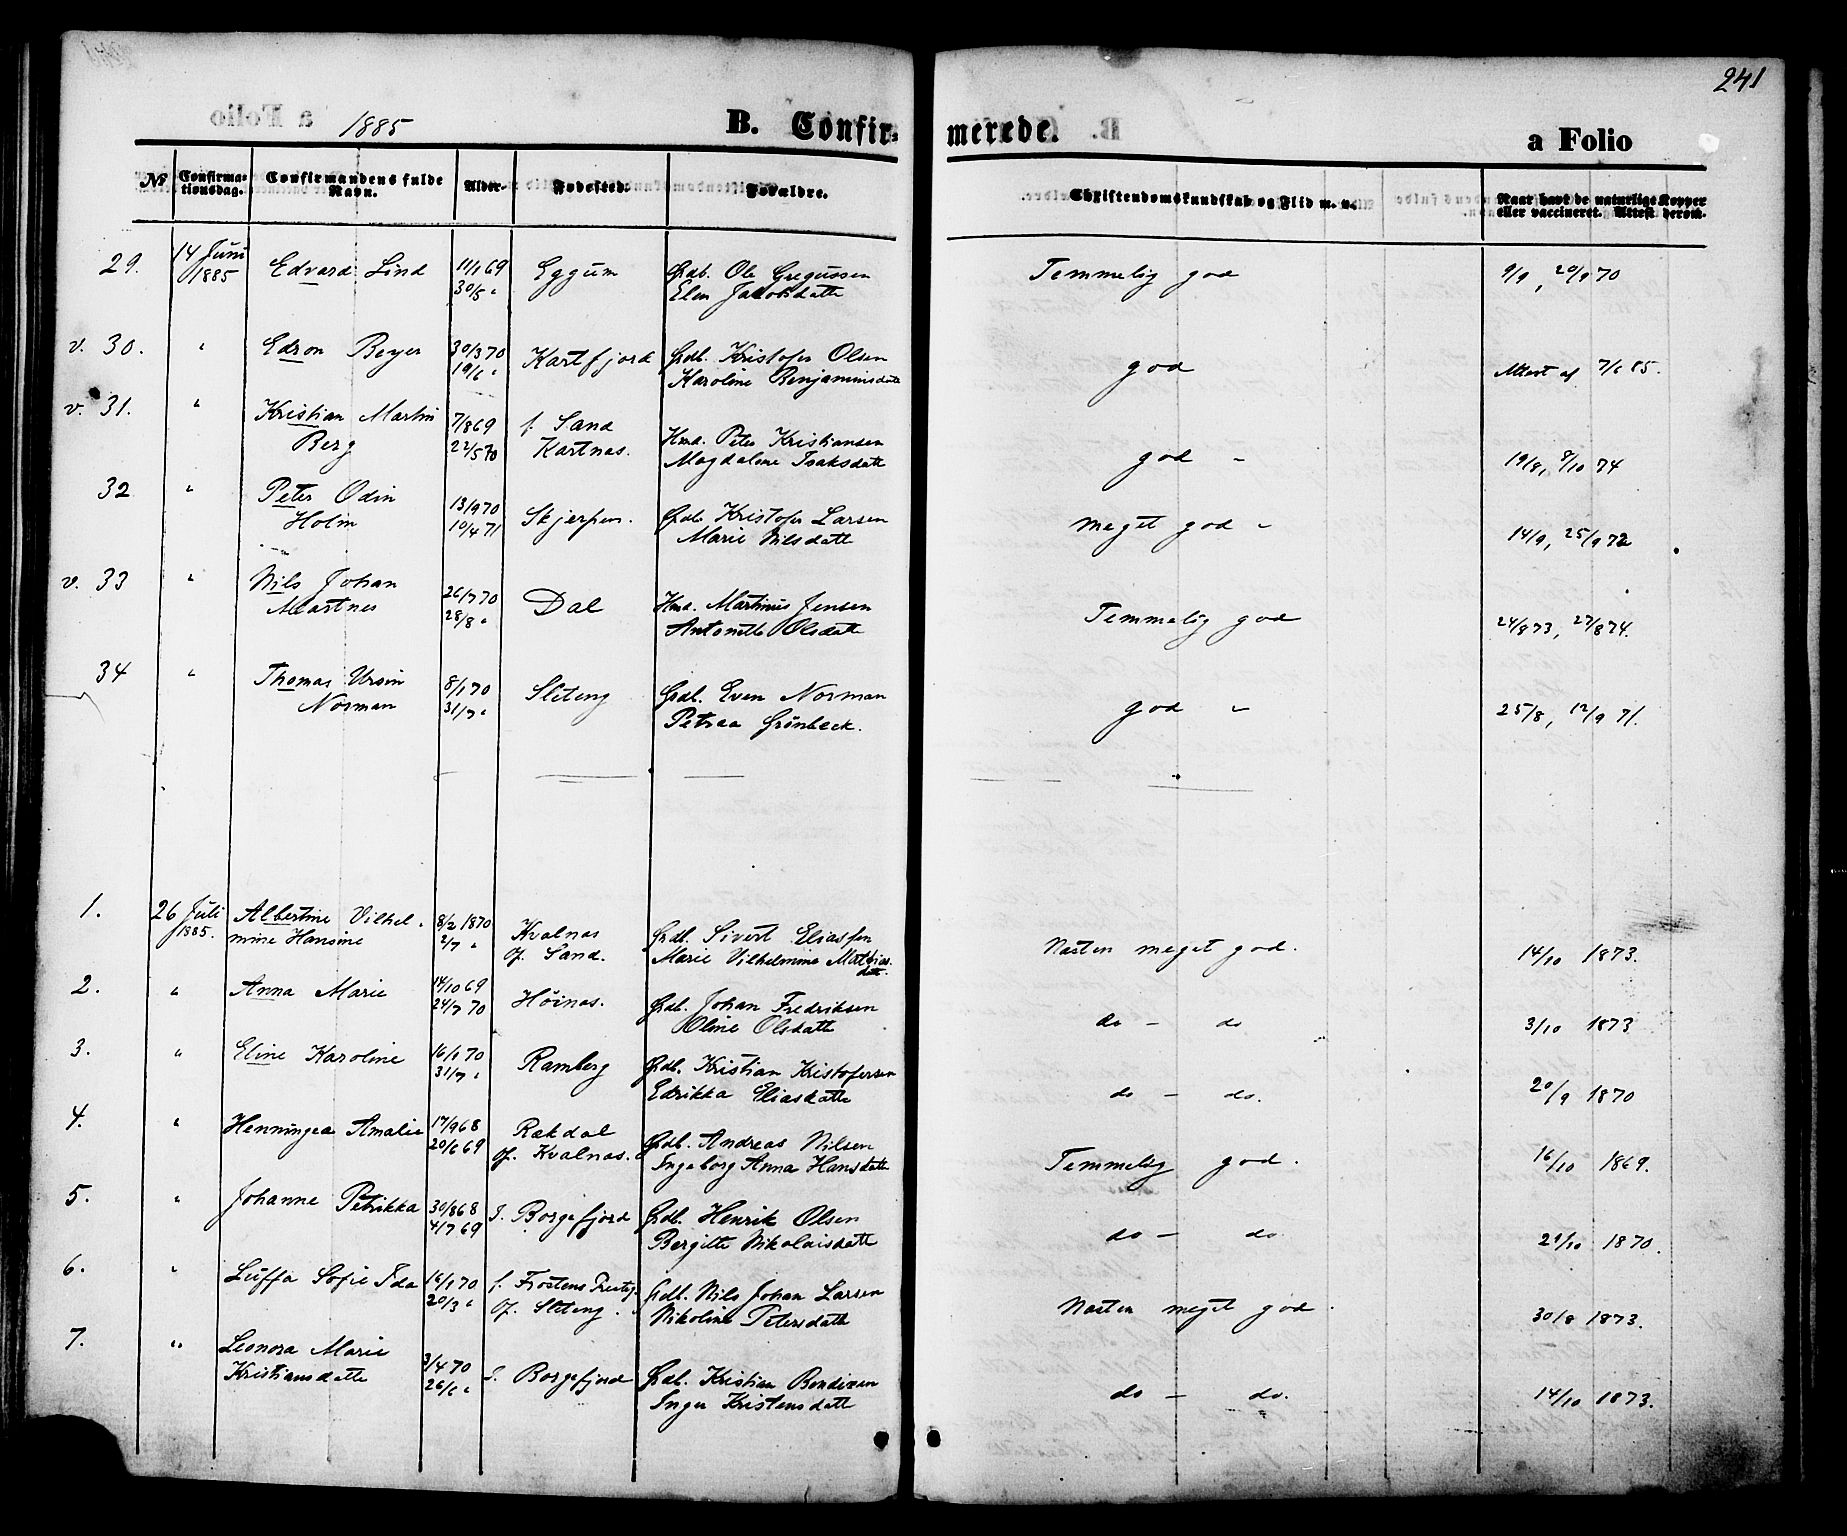 241
1885 B. Confir- merede. a Folio
No Confirma-tionsdag. Confirmandens fulde Navn. Alder. Fødested. Forældre. Christendomskundskab og Flid m. v. Naar havt de naturlige Kopper eller vaccineret. Attest derom.
29. 14 Juni 1885 Edvard Lind 11/1 69 30/5 " Eggum Grdb. Ole Gregussen Elen Jakobsdatt Temmelig god 9/9, 20/9 70
v. 30. " Edson Beyer 30/3 70 19/6 " Kartfjord Grdb. Kristofer Olsen Karoline Benjaminsdatt god Attest af 7/6 85.
v. 31. " Kristian Martin Berg 7/8 69 22/5 70 f. Sand Kartnæs. Hmd. Peter Kristiansen Magdalene Isaksdatt god " 19/8, 8/10 74
32 " Peter Odin Holm 13/9 70 10/4 71 Skjerpen. Grdb. Kristofer Larsen Marie Nilsdatt Meget god " 14/9, 25/9 72
v. 33 " Nils Johan Martnes 26/7 70 28/8 " Dal Hmd. Martinus Jensen Antonette Olsdatt Temmelig god 24/8 73, 27/8 74.
34 " Thomas Ursin Norman 8/1 70 31/7 " Sleteng Grdb. Even Norman Petraa Grönbeck. god " 25/8, 12/9 71.
1. 26 Juli 1885. Albertine Vilhel-mine Hansine 8/2 1870 2/7 " Kvalnæs Of. Sand. Grdb. Sivert Eliassen Marie Vilhelmine Mathiasdatt. Næsten meget god. 14/10 1873.
2. " Anna Marie 14/10 69 24/7 70 Höinæs. Grdb. Johan Fredriksen Oline Olsdatt do - do 3/10 1873
3. " Eline Karoline 16/1 70 31/7 " Ramberg Grdb. Kristian Kristofersen Edrikka Eliasdatte do - do. 20/9 1870
4. " Henningea Amalie 17/9 68 20/6 69 Rækdal Of. Kvalnæs. Grdb. Andreas Nilsen Ingeborg Anna Hansdatt Temmelig god. 16/10 1869.
5. " Johanne Petrikka 30/8 68 4/7 69 I. Borgefjord Grdb. Henrik Olsen Bergitte Nikolaisdatt do - do 29/10 1870.
6. " Luffa Sofie Ida 16/1 70 20/3 " f. Trostens Prestgj. Of. Sleteng. Grdb. Nils Johan Larsen Nikoline Petersdatt Næsten meget god. 30/8 1873.
7. " Leonora Marie Kristiansdatte 3/4 70 26/6 " I. Borgefjord Grdb. Kristian Bendixen Inger Kristensdatt do - do. 14/10 1873.